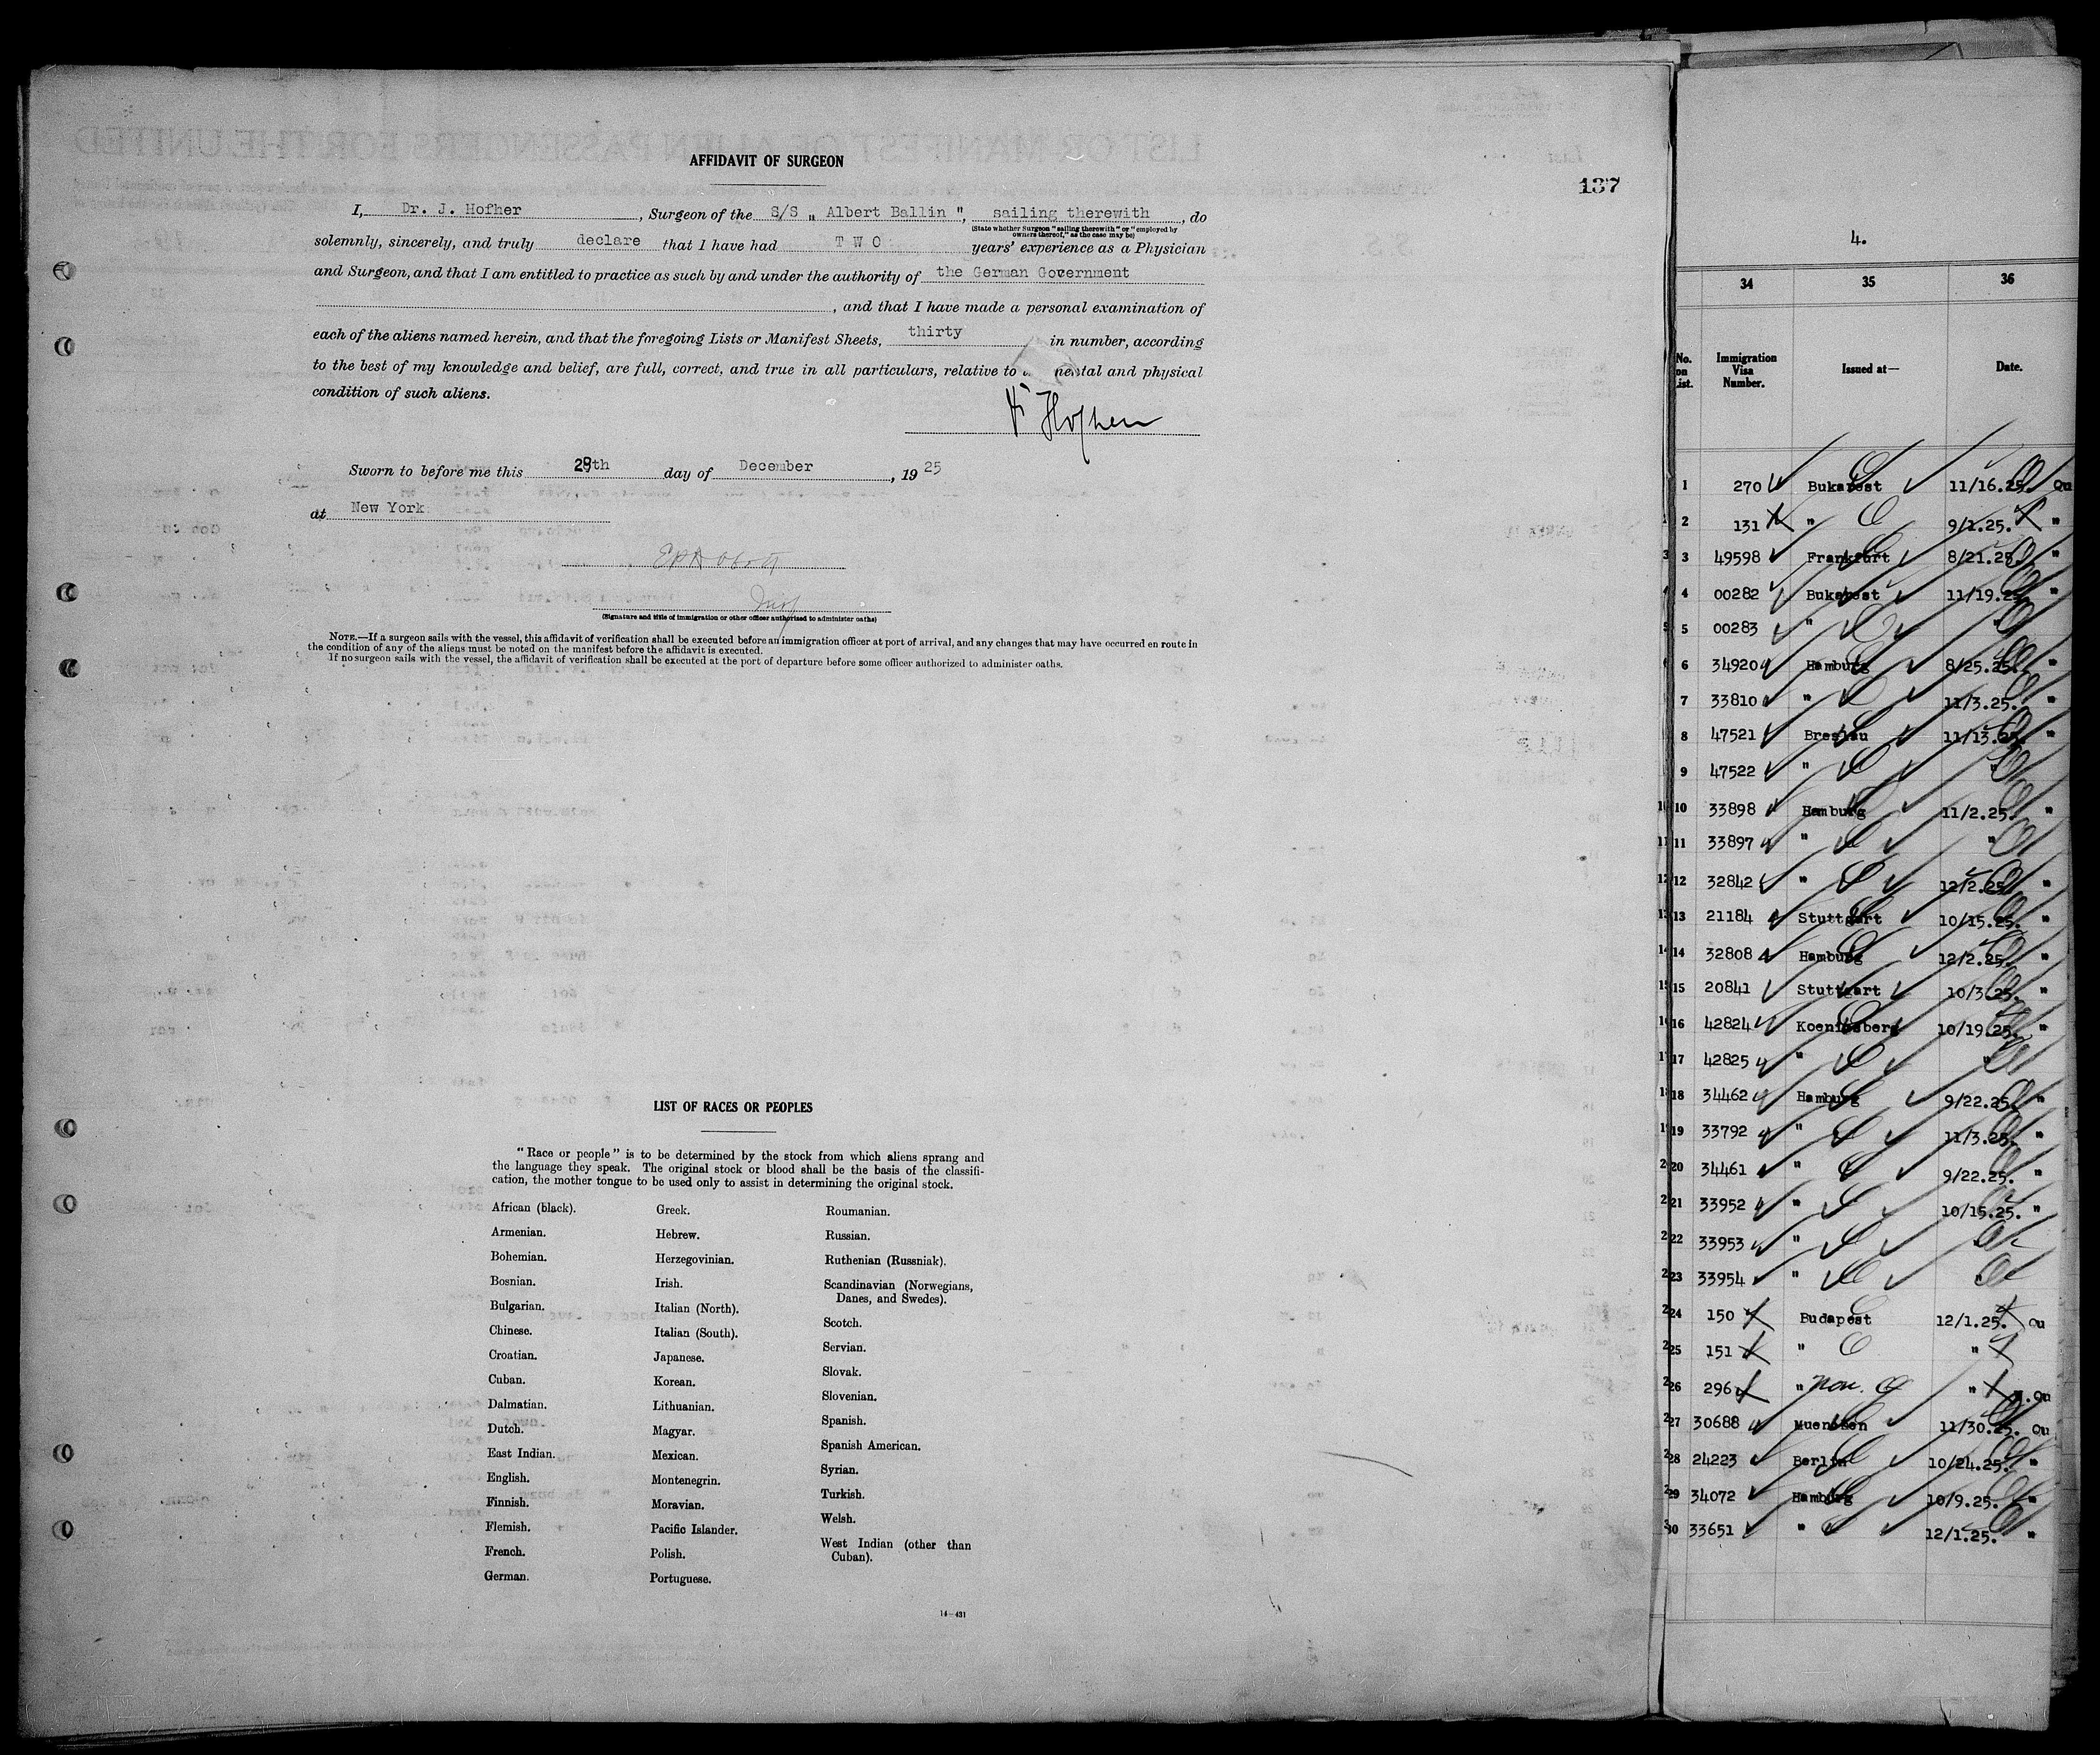 AFFIDAVIT OF SURGEON
137
I, Dr. J. Hofher , Surgeon of the S/S „ Albert Ballin ", sailing therewith , do
(State whether Surgeon "sailing therewith" or "employed by
owners thereof," as the case may be)
solemnly, sincerely, and truly declare that I have had T W O years' experience as a Physician
and Surgeon, and that I am entitled to practice as such by and under the authority of the German Government
, and that I have made a personal examination of
each of the aliens named herein, and that the foregoing Lists or Manifest Sheets, thirty in number, according
to the best of my knowledge and belief, are full, correct, and true in all particulars, relative to mental and physical
condition of such aliens.
Hofher
Sworn to before me this 29th day of December , 19 25
at New York
(Signature and title of immigration or other officer authorized to administer oaths)
NOTE.—If a surgeon sails with the vessel, this affidavit of verification shall be executed before an immigration officer at port of arrival, and any changes that may have occurred en route in
the condition of any of the aliens must be noted on the manifest before the affidavit is executed.
If no surgeon sails with the vessel, the affidavit of verification shall be executed at the port of departure before some officer authorized to administer oaths.
LIST OF RACES OR PEOPLES
"Race or people" is to be determined by the stock from which aliens sprang and
the language they speak. The original stock or blood shall be the basis of the classifi-
cation, the mother tongue to be used only to assist in determining the original stock.
African (black).
Armenian.
Bohemian.
Bosnian.
Bulgarian.
Chinese.
Croatian.
Cuban.
Dalmatian.
Dutch.
East Indian.
English.
Finnish.
Flemish.
French.
German.
Greek.
Hebrew.
Herzegovinian.
Irish.
Italian (North).
Italian (South).
Japanese.
Korean.
Lithuanian.
Magyar.
Mexican.
Montenegrin.
Moravian.
Pacific Islander.
Polish.
Portuguese.
Roumanian.
Russian.
Ruthenian (Russniak).
Scandinavian (Norwegians,
Danes, and Swedes).
Scotch.
Servian.
Slovak.
Slovenian.
Spanish.
Spanish American.
Syrian.
Turkish.
Welsh.
West Indian (other than
Cuban).
14—431
4.
34 35 36
No. on List. Immigration Visa Number. Issued at— Date.
1 270 Bukarest 11/16.25. Qu
2 131 " 9/1.25. "
3 49598 Frankfurt 8/21.25. "
4 00282 Bukarest 11/19.25 "
5 00283 " "
6 34920 Hamburg 8/25.25. "
7 33810 " 11/3.25. "
8 47521 Breslau 11/13.25. "
9 47522 " "
10 33898 Hamburg 11/2.25. "
11 33897 " "
12 32842 " 12/2.25. "
13 21184 Stuttgart 10/15.25. "
14 32808 Hamburg 12/2.25. "
15 20841 Stuttgart 10/3.25. "
16 42824 Koenigsberg 10/19.25. "
17 42825 " "
18 34462 Hamburg 9/22.25. "
19 33792 " 11/3.25. "
20 34461 " 9/22.25. "
21 33952 " 10/15.25. "
22 33953 " "
23 33954 " "
24 150 Budapest 12/1.25. Qu
25 151 " "
26 296 " Non. " .Qu
27 30688 Muenchen 11/30.25. Qu
28 24223 Berlin 10/24.25. "
29 34072 Hamburg 10/9.25. "
30 33651 " 12/1.25. "